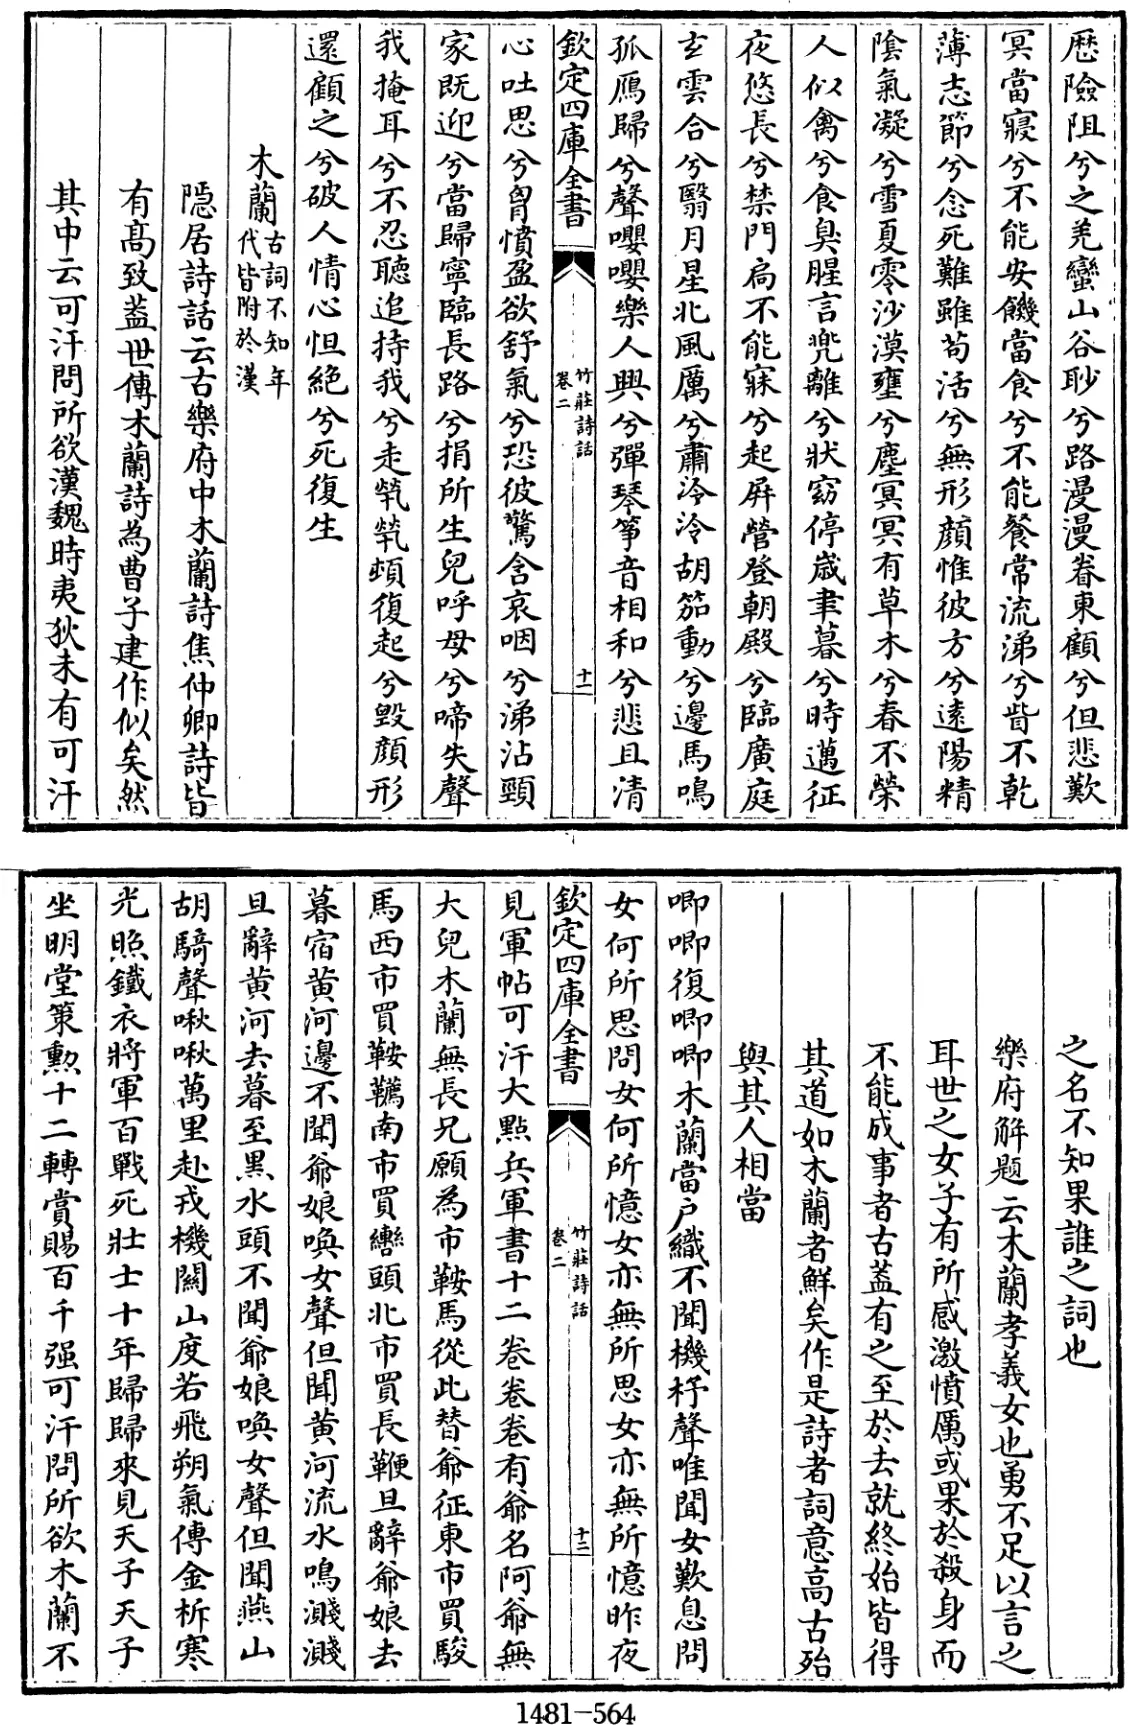 歴險阻兮之羌蠻山谷眇兮路漫漫眷東顧兮但悲歎
冥當寢兮不能安饑當食兮不能餐常流涕兮眥不乾
薄志節兮念死難雖茍活兮無形顔惟彼方兮逺陽精
陰氣凝兮雪夏零沙漠壅兮塵冥冥有草木兮春不榮
人似禽兮食臭腥言兜離兮狀窈停歳聿暮兮時邁征
夜悠長兮禁門扃不能寐兮起屏營登朝殿兮臨廣庭
玄雲合兮翳月星北風厲兮肅泠泠胡笳動兮邊馬鳴
孤鴈歸兮聲嚶嚶樂人興兮彈琴筝音相和兮悲且清
欽定四庫全書
竹莊詩話
卷二
十一
心吐思兮胷憤盈欲舒氣兮恐彼驚含哀咽兮涕沾頸
家既迎兮當歸寧臨長路兮捐所生兒呼母兮啼失聲
我掩耳兮不忍聽追持我兮走煢煢頓復起兮毀顔形
還顧之兮破人情心怛絶兮死復生
木蘭古詞不知年
代皆附於漢
隠居詩話云古樂府中木蘭詩焦仲卿詩皆
有髙致葢世傳木蘭詩為曹子建作似矣然
其中云可汗問所欲漢魏時夷狄未有可汗
之名不知果誰之詞也
樂府解題云木蘭孝義女也勇不足以言之
耳世之女子有所感激憤厲或果於殺身而
不能成事者古葢有之至於去就終始皆得
其道如木蘭者鮮矣作是詩者詞意高古殆
與其人相當
唧唧復唧唧木蘭當户織不聞機杼聲唯聞女歎息問
女何所思問女何所憶女亦無所思女亦無所憶昨夜
欽定四庫全書
竹莊詩話
卷二
十二
見軍帖可汗大點兵軍書十二卷卷卷有爺名阿爺無
大兒木蘭無長兄願為市鞍馬從此替爺征東市買駿
馬西市買鞍韉南市買轡頭北市買長鞭旦辭爺娘去
暮宿黄河邊不聞爺娘喚女聲但聞黄河流水鳴濺濺
旦辭黄河去暮至黒水頭不聞爺娘喚女聲但聞燕山
胡騎聲啾啾萬里赴戎機闗山度若飛朔氣傳金柝寒
光照鐵衣將軍百戰死壯士十年歸歸來見天子天子
坐明堂策勲十二轉賞賜百千强可汗問所欲木蘭不
1481-564